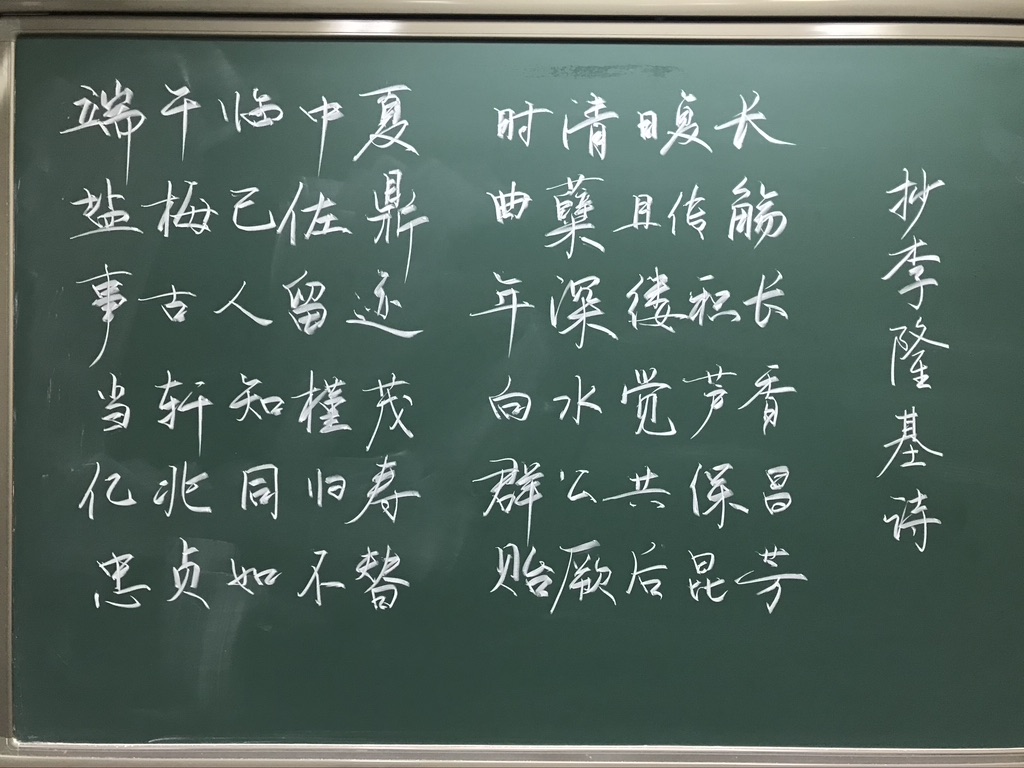 端午临中夏 时清日复长
盐梅已佐鼎 曲蘖且传觞
事古人留迹 年深缕积长
当轩知槿茂 向水觉芦香
亿兆同归寿 群公共保昌
忠贞如不替 贻厥后昆芳
抄李隆基诗